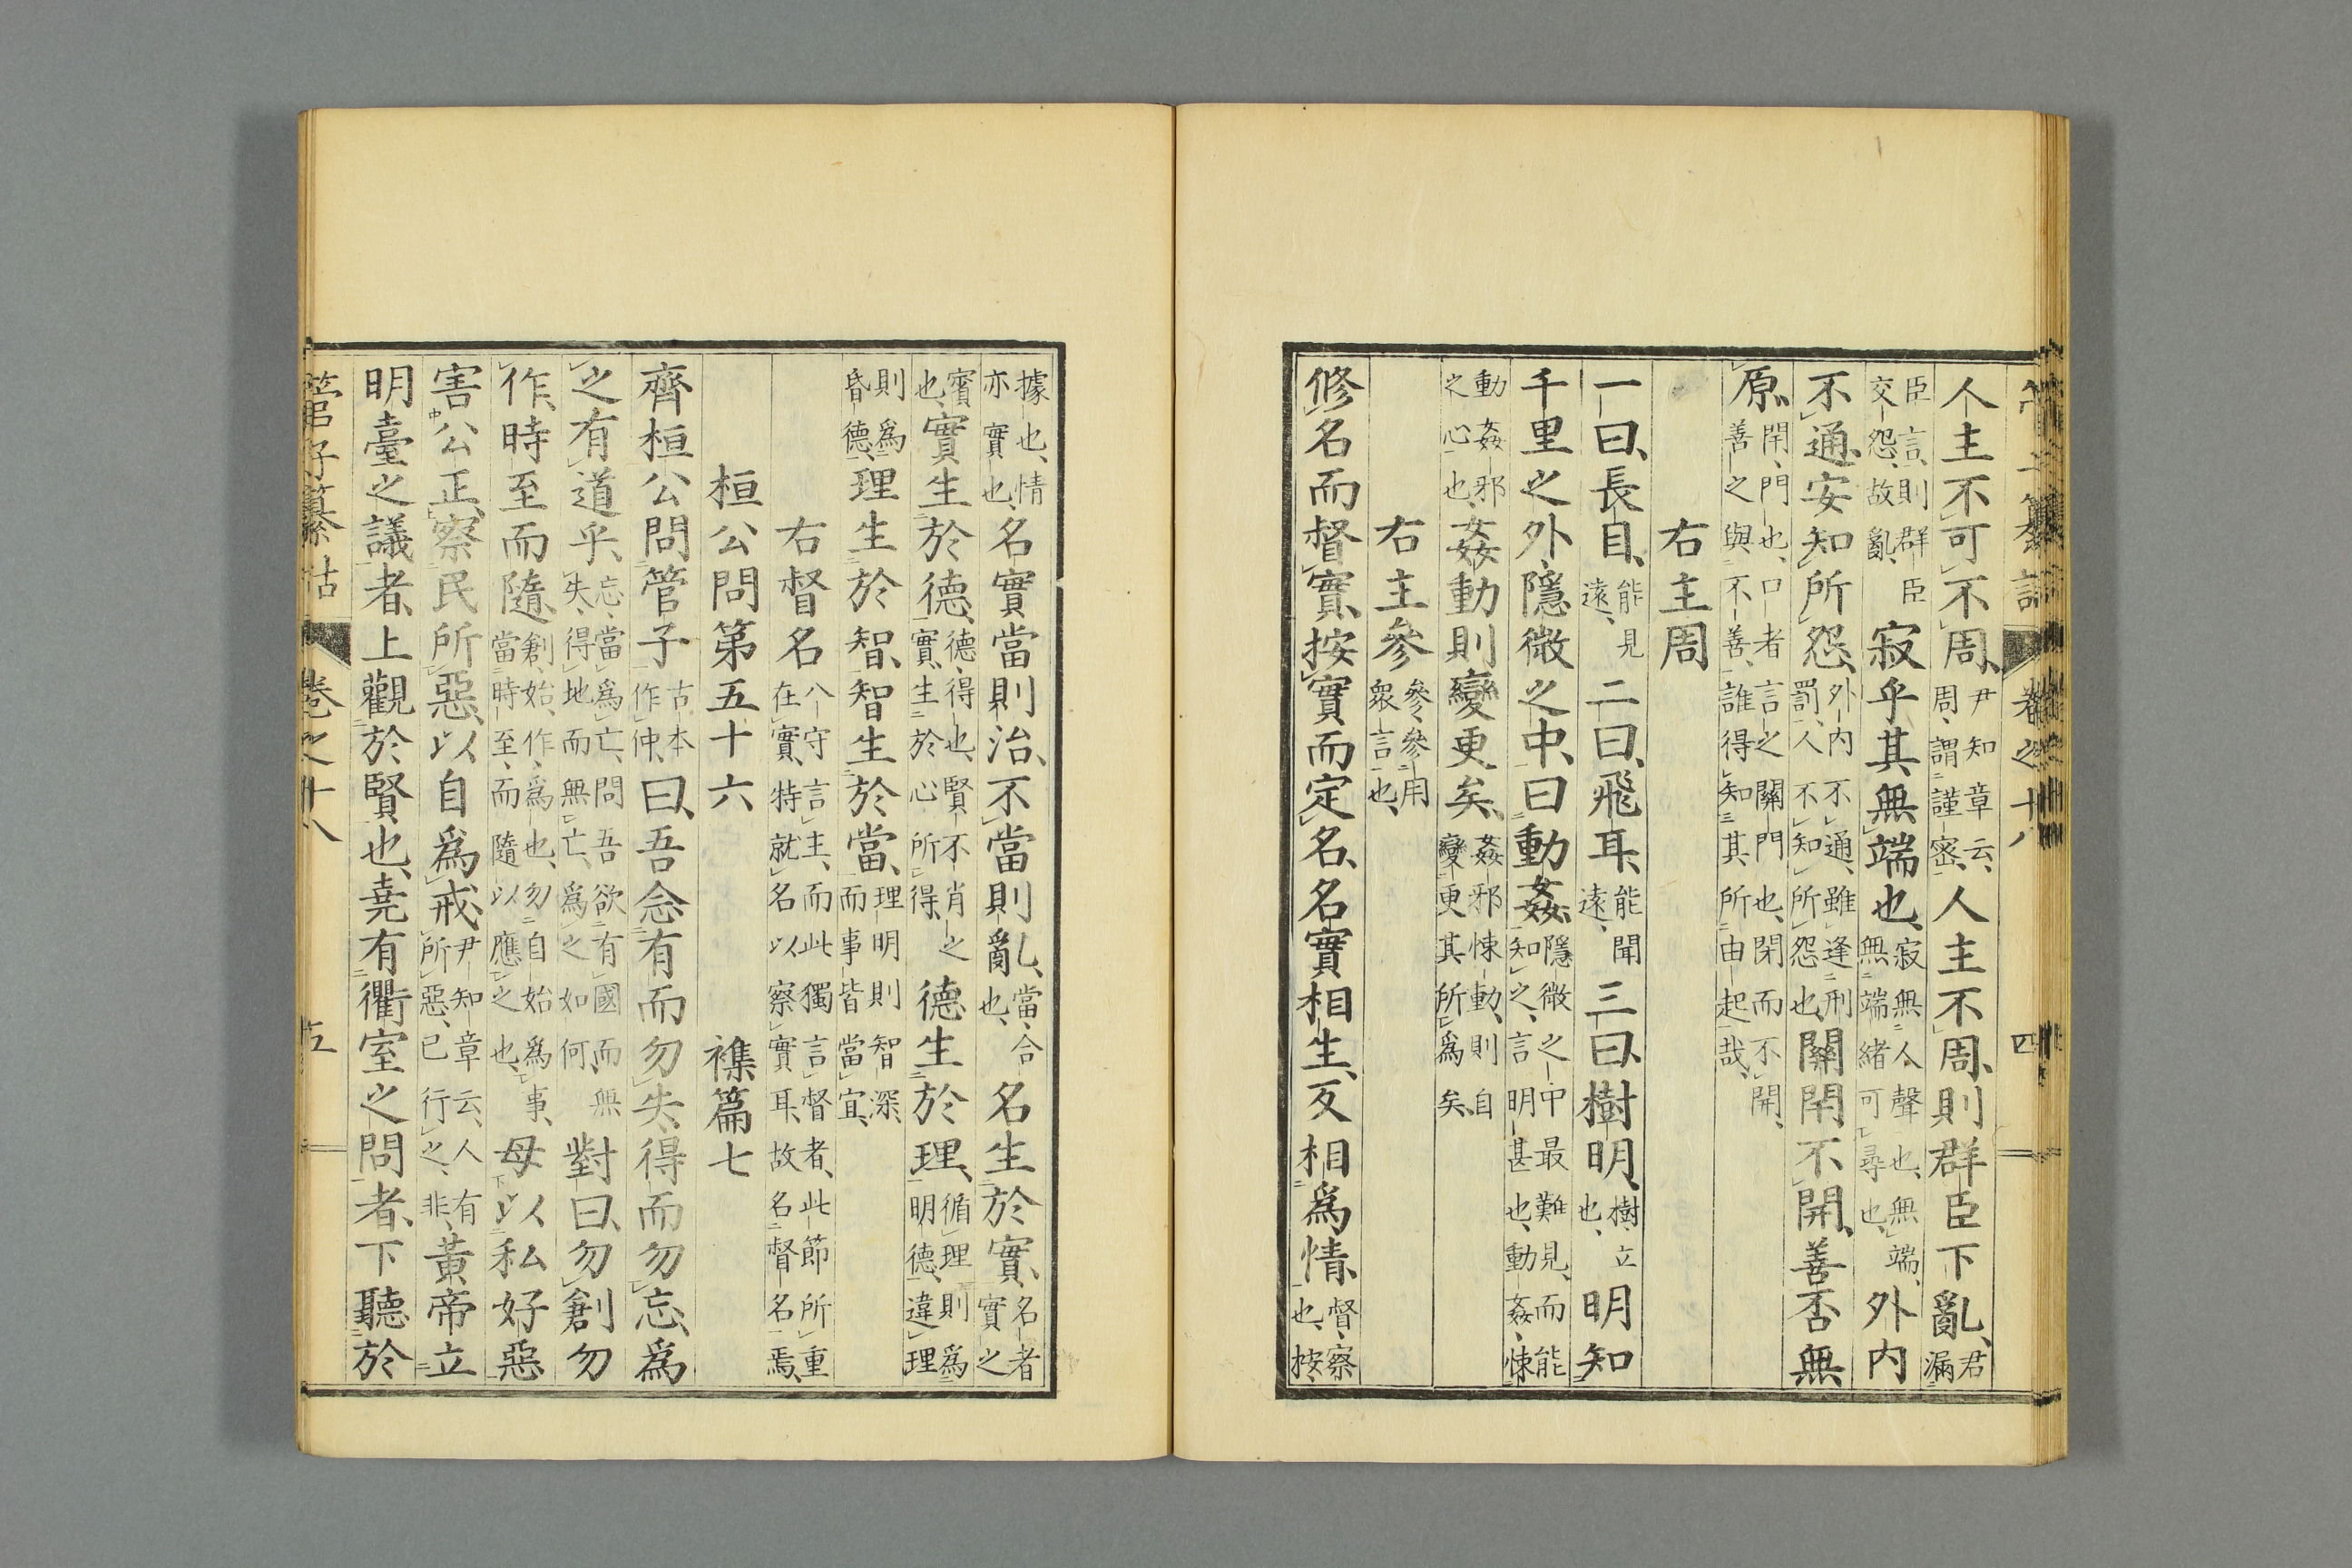 管子纂詁 卷之十八 四
人主不可不周、尹知章云、周、謂謹密、人主不周、則群臣下亂、君漏
臣言、則群臣交怨、故亂、寂乎其無端也、寂無人聲也、無端、無端緒可尋也、外内
不通、安知所怨、外内不通、雖逢刑罰、人不知所怨也、關閈不開、善否無
原、閈、門也、口者言之關門也、閉而不開、善之與不善、誰得知其所由起哉、
右主周
一曰、長目、能見遠、二曰、飛耳、能聞遠、三曰、樹明、樹、立也、明知
千里之外、隱微之中、曰動姦、隱微之中最難見、而能知之、言明甚也、動姦、悚
動姦邪之心也、姦動則變更矣、姦邪悚動、則自變更其所爲矣、
右主參 參、參用衆言也、
修名而督實、按實而定名、名實相生、反相爲情、督、察也、按、
據也、情亦實也、名實當則治、不當則亂、當、合也、名生於實、名者實之
賓也、實生於德、德、得也、賢不肖之實、生於心所得、德生於理、循理則爲明德、違理
則爲昏德、理生於智、智生於當、理明則智深、而事皆當宜、
右督名 八守言主、而此獨言督者、此節所重在實、特就名以察實耳、故名督名焉、
桓公問第五十六 襍篇七
齊桓公問管子古本作仲、曰、吾念有而勿失、得而勿忘、爲
之有道乎、忘、當爲亡、問吾欲有國而無失、得地而無亡、爲之如何、對曰、勿創勿
作、時至而隨、創、始、作、爲也、勿自始爲事、當時至、而隨以應之也、毋以私好惡
害公正、察民所惡、以自爲戒、尹知章云、人有所惡、已行之、非、黃帝立
明臺之議者、上觀於賢也、堯有衢室之問者、下聽於
管子纂詁 卷之十八 五